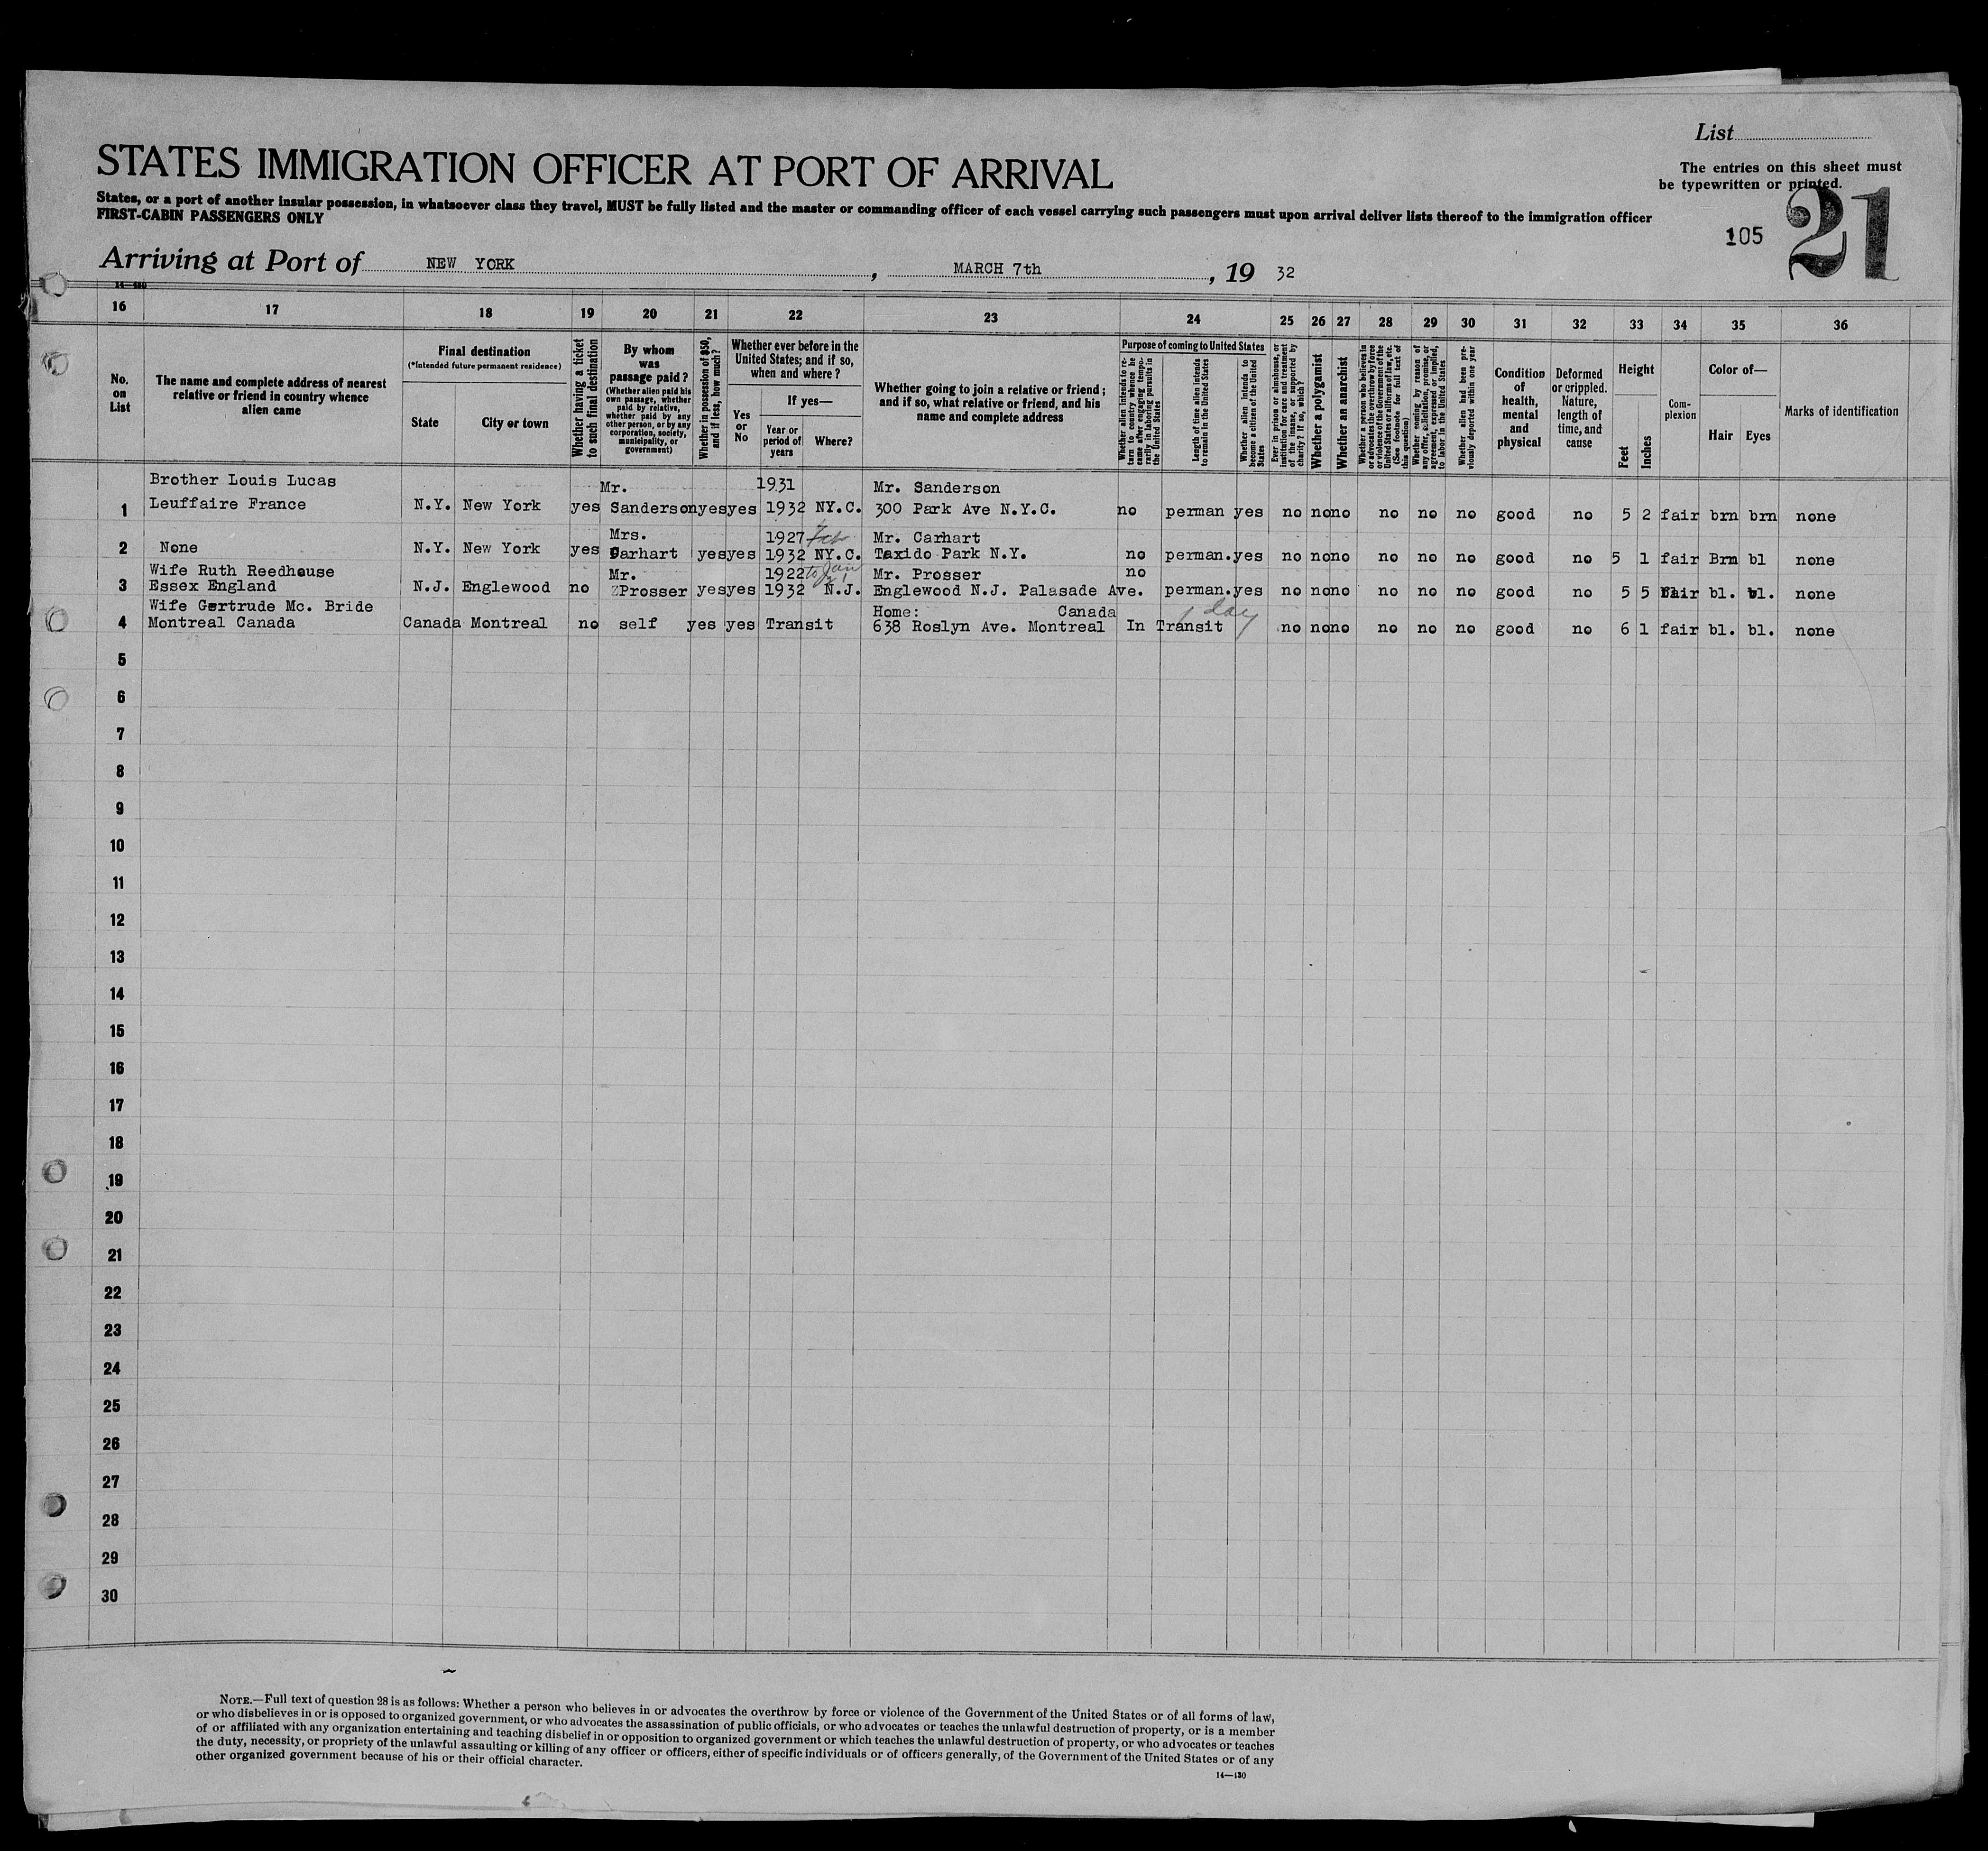 List
STATES IMMIGRATION OFFICER AT PORT OF ARRIVAL
The entries on this sheet must
be typewritten or printed.
States, or a port of another insular possession, in whatsoever class they travel, MUST be fully listed and the master or commanding officer of each vessel carrying such passengers must upon arrival deliver lists thereof to the immigration officer
FIRST-CABIN PASSENGERS ONLY
105
21
Arriving at Port of NEW YORK, MARCH 7th, 19 32
16 17 18 19 20 21 22 23 24 25 26 27 28 29 30 31 32 33 34 35 36
No.
on
List
The name and complete address of nearest
relative or friend in country whence
alien came
Final destination
(*Intended future permanent residence)
State
City or town
Whether having a ticket
to such final destination
By whom
was
passage paid?
(Whether alien paid his
own passage, whether
paid by relative,
whether paid by any
other person, or by any
corporation, society,
municipality, or
government)
Whether in possession of $50,
and if less, how much?
Whether ever before in the
United States; and if so,
when and where?
Yes
or
No
If yes—
Year or
period of
years
Where?
Whether going to join a relative or friend;
and if so, what relative or friend, and his
name and complete address
Purpose of coming to United States
Whether alien intends to re-
turn to country whence he
came after engaging tempo-
rarily in laboring pursuits in
the United States
Length of time alien intends
to remain in the United States
Whether alien intends to
become a citizen of the United
States
Ever in prison or almshouse, or
institution for care and treatment
of the insane, or supported by
charity? If so, which?
Whether a polygamist
Whether an anarchist
Whether a person who believes in
or advocates the overthrow by force
or violence of the Government of the
United States or all forms of law, etc.
(See footnote for full text of
this question)
Whether coming by reason of
any offer, solicitation, promise, or
agreement, expressed or implied,
to labor in the United States
Whether alien had been pre-
viously deported within one year
Condition
of
health,
mental
and
physical
Deformed
or crippled.
Nature,
length of
time, and
cause
Height
Feet
Inches
Com-
plexion
Color of—
Hair
Eyes
Marks of identification
Brother Louis Lucas Mr. 1931 Mr. Sanderson
1 Leuffaire France N.Y. New York yes Sanderson yes yes 1932 NY.C. 300 Park Ave N.Y.C. no perman yes no no no no no no good no 5 2 fair brn brn none
Mrs. 1927 Feb Mr. Carhart
2 None N.Y. New York yes Carhart yes yes 1932 NY.C. Taxido Park N.Y. no perman. yes no no no no no no good no 5 1 fair Brn bl none
Wife Ruth Reedhouse Mr. 1922 to Jan Mr. Prosser no
3 Essex England N.J. Englewood no Prosser yes yes 1932 N.J. Englewood N.J. Palasade Ave. perman. yes no no no no no no good no 5 5 fair bl. bl. none
Wife Gertrude Mc. Bride Home: Canada 1 day
4 Montreal Canada Canada Montreal no self yes yes Transit 638 Roslyn Ave. Montreal In Transit no no no no no no good no 6 1 fair bl. bl. none
5
6
7
8
9
10
11
12
13
14
15
16
17
18
19
20
21
22
23
24
25
26
27
28
29
30
NOTE.—Full text of question 28 is as follows: Whether a person who believes in or advocates the overthrow by force or violence of the Government of the United States or of all forms of law,
or who disbelieves in or is opposed to organized government, or who advocates the assassination of public officials, or who advocates or teaches the unlawful destruction of property, or is a member
of or affiliated with any organization entertaining and teaching disbelief in or opposition to organized government or which teaches the unlawful destruction of property, or who advocates or teaches
the duty, necessity, or propriety of the unlawful assaulting or killing of any officer or officers, either of specific individuals or of officers generally, of the Government of the United States or of any
other organized government because of his or their official character.
14—130